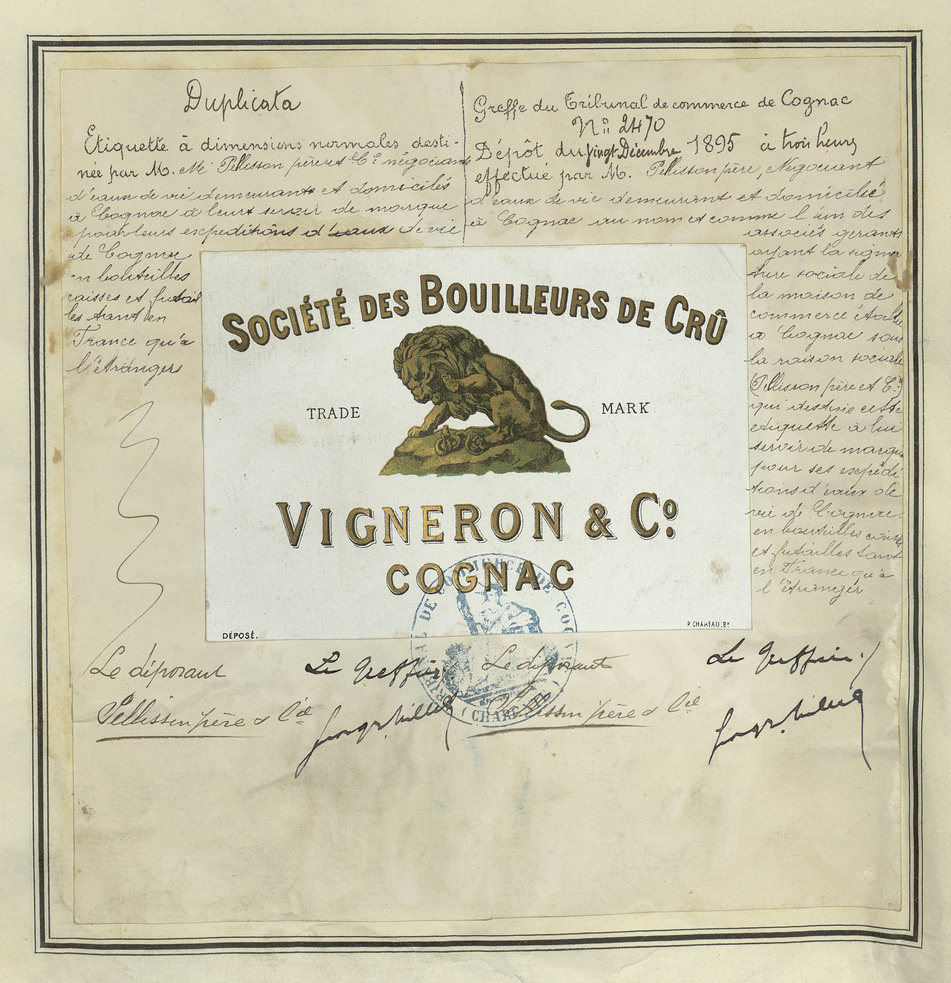 Duplicata
Etiquette à dimensions normales, desti-
née par M. Mr Pellisson père et Cie négociants
d'eaux de vie demeurant et domiciliés
à Cognac à leurs servir de marque
pour leurs expeditions d'eaux de vie
de Cognac
en bouteilles
caisses et futail
les tant en
France qu'à
l'étrangers
Greffe du Tribunal de commerce de Cognac
No 2470
Dépôt du vingt Décembre 1895 à trois heures
effectué par M. Pellisson père, Négociant
d'eaux de vie demeurant et domicilié
à Cognac au nom et comme l'un des
associés gerants
ayant la signa
ture sociale de
la maison de
commerce établie
à Cognac sous
la raison sociale
(Pellisson père et Cie)
qui destine cette
etiquette à lui
servir de marque
pour ses expédi
tions d'eaux de
vie de Cognac
en bouteilles caisses
et futailles tant
en France qu'à
l'étranger
SOCIÉTÉ DES BOUILLEURS DE CRÛ
TRADE MARK
VIGNERON & Co.
COGNAC
DÉPOSÉ.
TRIBUNAL DE COMMERCE DE COGNAC
(CHARENTE)
Le déposant
Pellisson père & Cie
Le Greffier
Le déposant
Pellisson père & Cie
Le Greffier